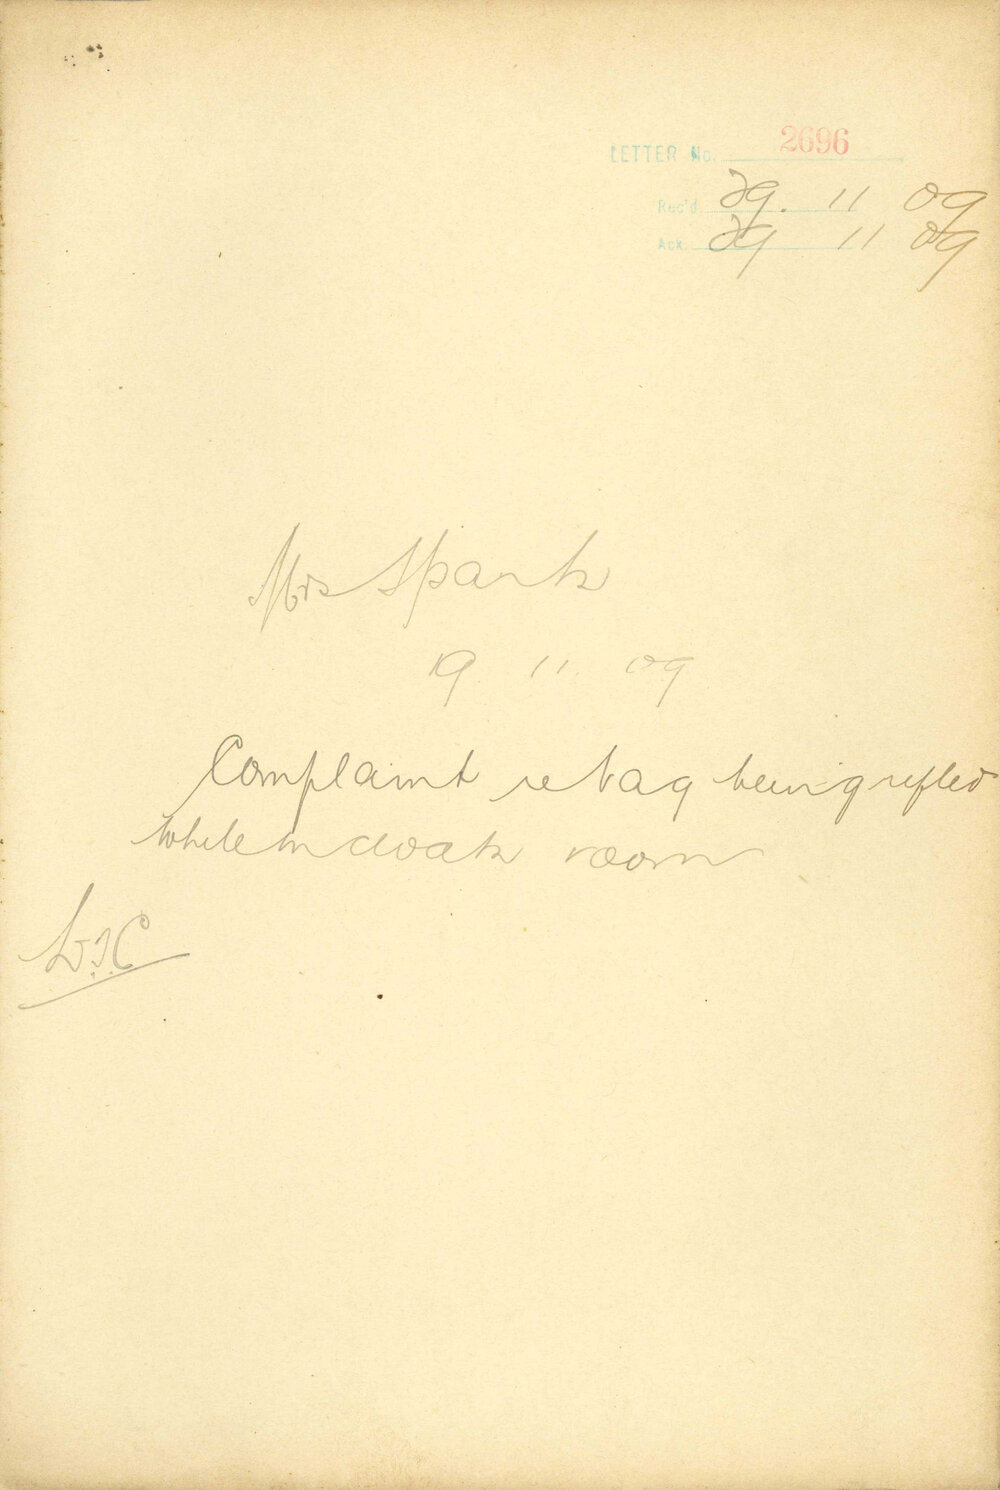 LETTER No. 2696
Rec'd. 29. 11 09
Ack. 29 11 09
Mrs Spark
19. 11. 09
Complaint re bag being rifled
while in cloak room